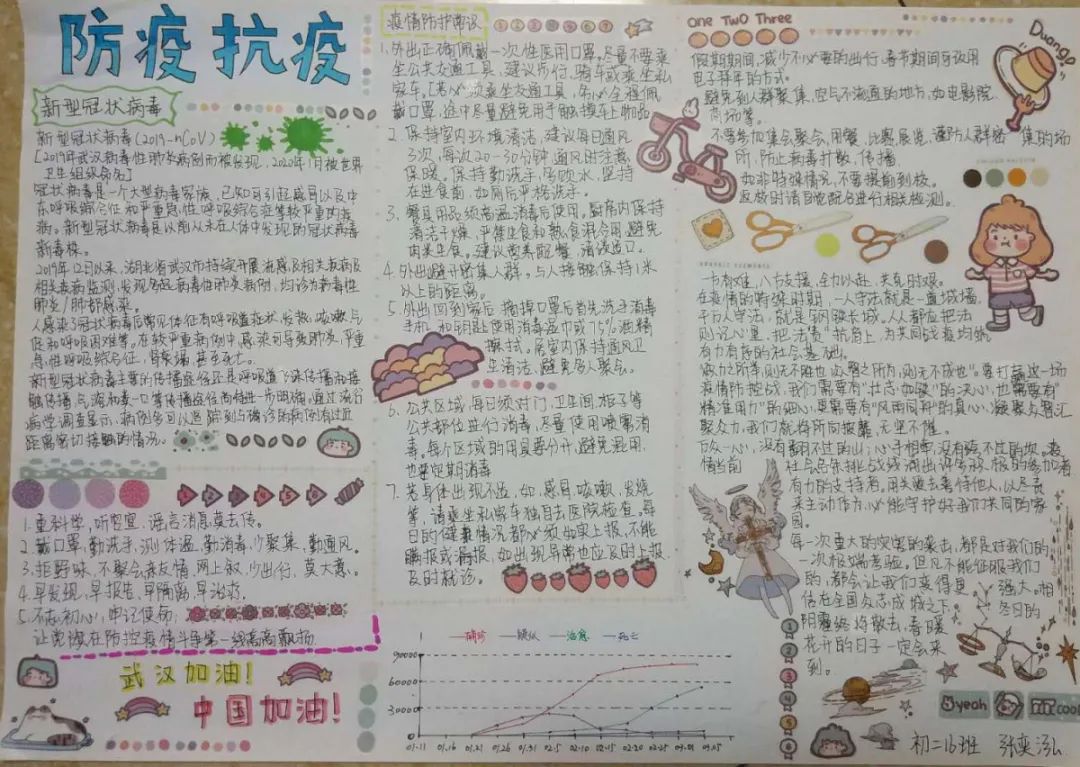 防疫抗疫
新型冠状病毒
新型冠状病毒(2019-nCoV)
[2019年武汉病毒性肺炎病例而被发现,2020年1月被世界
卫生组织命名]
冠状病毒是一个大型病毒家族,已知可引起感冒以及中
东呼吸综合征和严重急性呼吸综合征等较严重的疾
病。新型冠状病毒是以前从未在人体中发现的冠状病毒
新毒株。
2019年12月以来,湖北省武汉市持续开展流感及相关疾病及
相关疾病监测,发现多起病毒性肺炎病例,均诊为病毒性
肺炎/肺部感染。
人感染了冠状病毒后常见体征有呼吸道症状、发热、咳嗽、气
促和呼吸困难等。在较严重病例中,感染可导致肺炎、严重
急性呼吸综合征、肾衰竭,甚至死亡。
新型冠状病毒主要的传播途径还是呼吸道飞沫传播和接
触传播,气溶和粪—口等传播途径尚待进一步明确。通过流行
病学调查显示,病例多可以追踪到与确诊的病例有过近
距离密切接触的情况。
1 2 3 4 5 6
1.重科学,听官宣,谣言消息莫去传。
2.戴口罩,勤洗手,测体温,勤消毒,少聚集,勤通风。
3.拒野味,不聚会,亲友情,网上叙,少出行,莫大意。
4.早发现,早报告,早隔离,早治疗。
5.不忘初心,牢记使命;
让党旗在防控疫情斗争第一线高高飘扬
武汉加油!
中国加油!
疫情防护常识
1 2 3 4 5 6 7
1.外出正确佩戴一次性医用口罩。尽量不要乘
坐公共交通工具,建议步行,骑车或乘坐私
家车,[若必须乘坐交通工具,务必全程佩
戴口罩,途中尽量避免用手触摸车上物品
2.保持室内环境清洁,建议每日通风
3次,每次20-30分钟,通风时注意
保暖。保持勤洗手,多喝水,坚持
在进食前,如厕后严格洗手。
3.餐具用品须高温消毒后使用。厨房内保持
清洁干燥,严禁生食和熟食混合用,避免
肉类生食。建议营养配餐,清淡适口。
4.外出避开密集人群。与人接触保持1米
以上的距离。
5.外出回到家后,摘掉口罩后首先洗手消毒
手机和钥匙使用消毒湿巾或75%酒精
擦拭。居室内保持通风卫
生清洁,避免多人聚会。
6.公共区域,每日须对门、卫生间、柜子等
公共部位进行消毒,尽量使用喷雾消
毒。每个区域的用具要分开,避免混用,
也要定期消毒
7.若身体出现不适,如感冒、咳嗽、发烧
等,请乘坐私家车独自去医院检查。每
日的健康情况都必须如实上报,不能
瞒报或漏报,如出现异常也应及时上报
及时就诊。
确诊 疑似 治愈 死亡
90000
60000
30000
0
01-11 01-16 01-21 01-26 01-31 02-5 02-10 02-15 02-20 02-25
one Two Three
假期期间,减少不必要的出行,春节期间可改用
电子拜年的方式。
避免到人群聚集,空气不流通的地方,如电影院
商场等。
不要参加集会聚会,用餐,比赛展览,谨防人群密集的场
所,防止病毒扩散、传播。
如非特殊情况,不要提前到校。
返校时请自觉配合进行相关检测。
Duang
一方有难,八方支援,全力以赴,共克时艰。
在疫情的特殊时期,一人守法就是一道城墙,
千万人守法,就是钢铁长城。人人都应把法
则记心里,把“法责”扛肩上,为共同战疫均筑
有力有序的社会基础。
“积力之所举,则无不胜也;众智之所为,则无不成也”。要打赢这一场
疫情防控战,我们需要有“壮志如铁”的决心,也需要有“
精准用力”的细心,更需要有“风雨同舟”的真心,凝聚众智汇
聚众力,我们就将所向披靡,无坚不摧。
万众一心,没有翻不过的山;心手相牵,没有跨不过的坎。疫
情当前
有力的支持者,用关爱去善待他人,以尽责
来主动作为,必能守护好我们共同的家
园。
每一次重大的灾害的袭击,都是对我们的
一次极端考验。但凡不能征服我们
的,都会让我们变得更强大。相
信在全国众志成城之下,冬日的
阴霾终将散去,春暖
花开的日子一定会来
到。
1
2
3
4
5
6
yeah
cool
初二16班 张奕泓